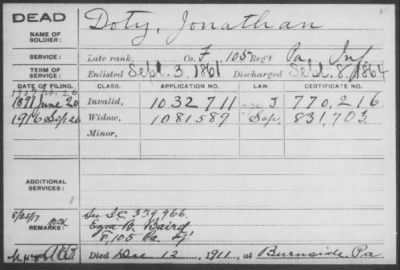 DEAD
NAME OF SOLDIER:
Doty, Jonathan
SERVICE:
Late rank, Co. F, 105 Reg't Pa. Inf
TERM OF SERVICE:
Enlisted Sept. 3, 1861. Discharged Sept. 8, 1864
DATE OF FILING. CLASS. APPLICATION NO. LAW. CERTIFICATE NO.
1891 June 20 Invalid, 1032711 J 770,216.
1916 Sep 26 Widow, 1081589 Sep. 831,703.
Minor,
ADDITIONAL SERVICES:
REMARKS:
See I C 339,966.
Ezra B. Baird
F, 105 Pa. Inf
Died Dec 12, 1911, at Burnside, Pa